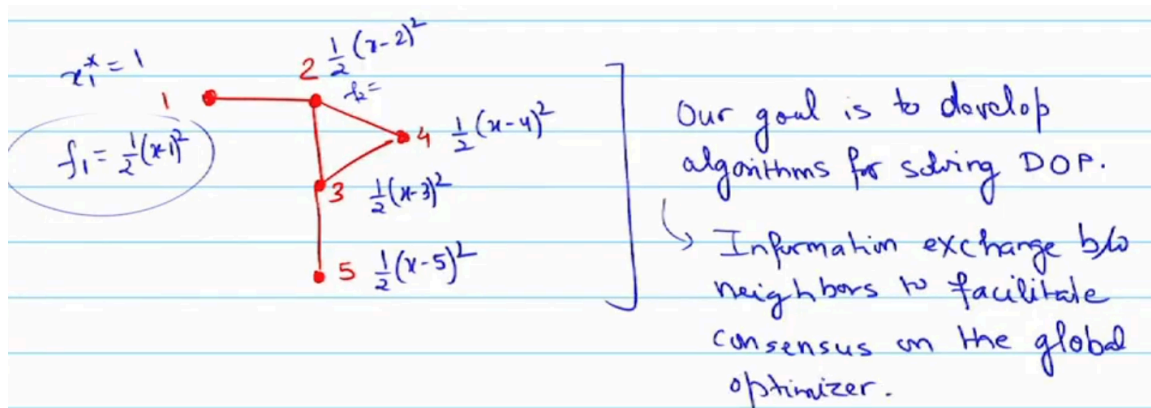 x₁* = 1
1
f₁ = ½(x-1)²
2 ½(x-2)²
f₂=
4 ½(x-4)²
3 ½(x-3)²
5 ½(x-5)²
Our goal is to develop
algorithms for solving DOP.
↳ Information exchange b/w
neighbors to facilitate
consensus on the global
optimizer.